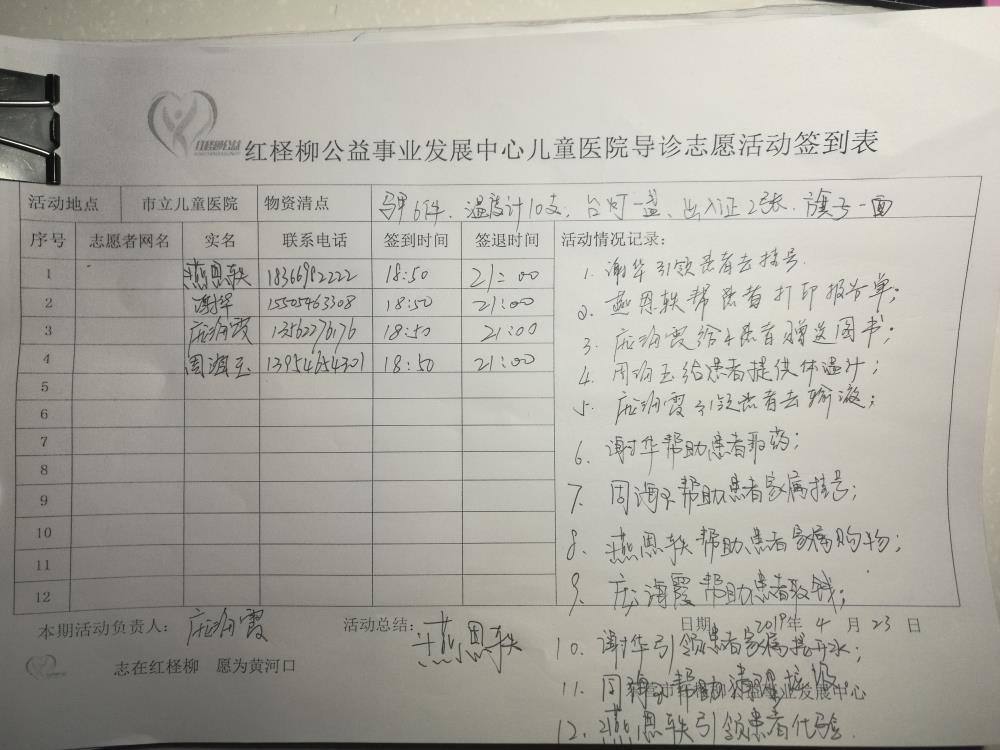 红柽柳公益事业发展中心儿童医院导诊志愿活动签到表
活动地点 市立儿童医院 物资清点 马甲6件、温度计10支、台灯一盏、出入证2张、旗子一面
序号 志愿者网名 实名 联系电话 签到时间 签退时间 活动情况记录：
1 燕恩轶 18366982222 18:50 21:00
2 谢华 15505463308 18:50 21:00
3 庄海霞 13562276176 18:50 21:00
4 周海玉 13954654301 18:50 21:00
5
6
7
8
9
10
11
12
1. 谢华引领患者去挂号.
2. 燕恩轶帮患者打印报告单；
3. 庄海霞给小患者赠送图书；
4. 周海玉给患者提供体温计；
5. 庄海霞引领患者去输液；
6. 谢华帮助患者取药；
7. 周海玉帮助患者家属挂号；
8. 燕恩轶帮助患者家属购物；
9. 庄海霞帮助患者取钱；
本期活动负责人：庄海霞 活动总结：燕恩轶 日期 2019年4月23日
10. 谢华引领患者家属接开水；
志在红柽柳 愿为黄河口
11. 周 帮助 业发展中心
12. 燕恩轶引领患者代验